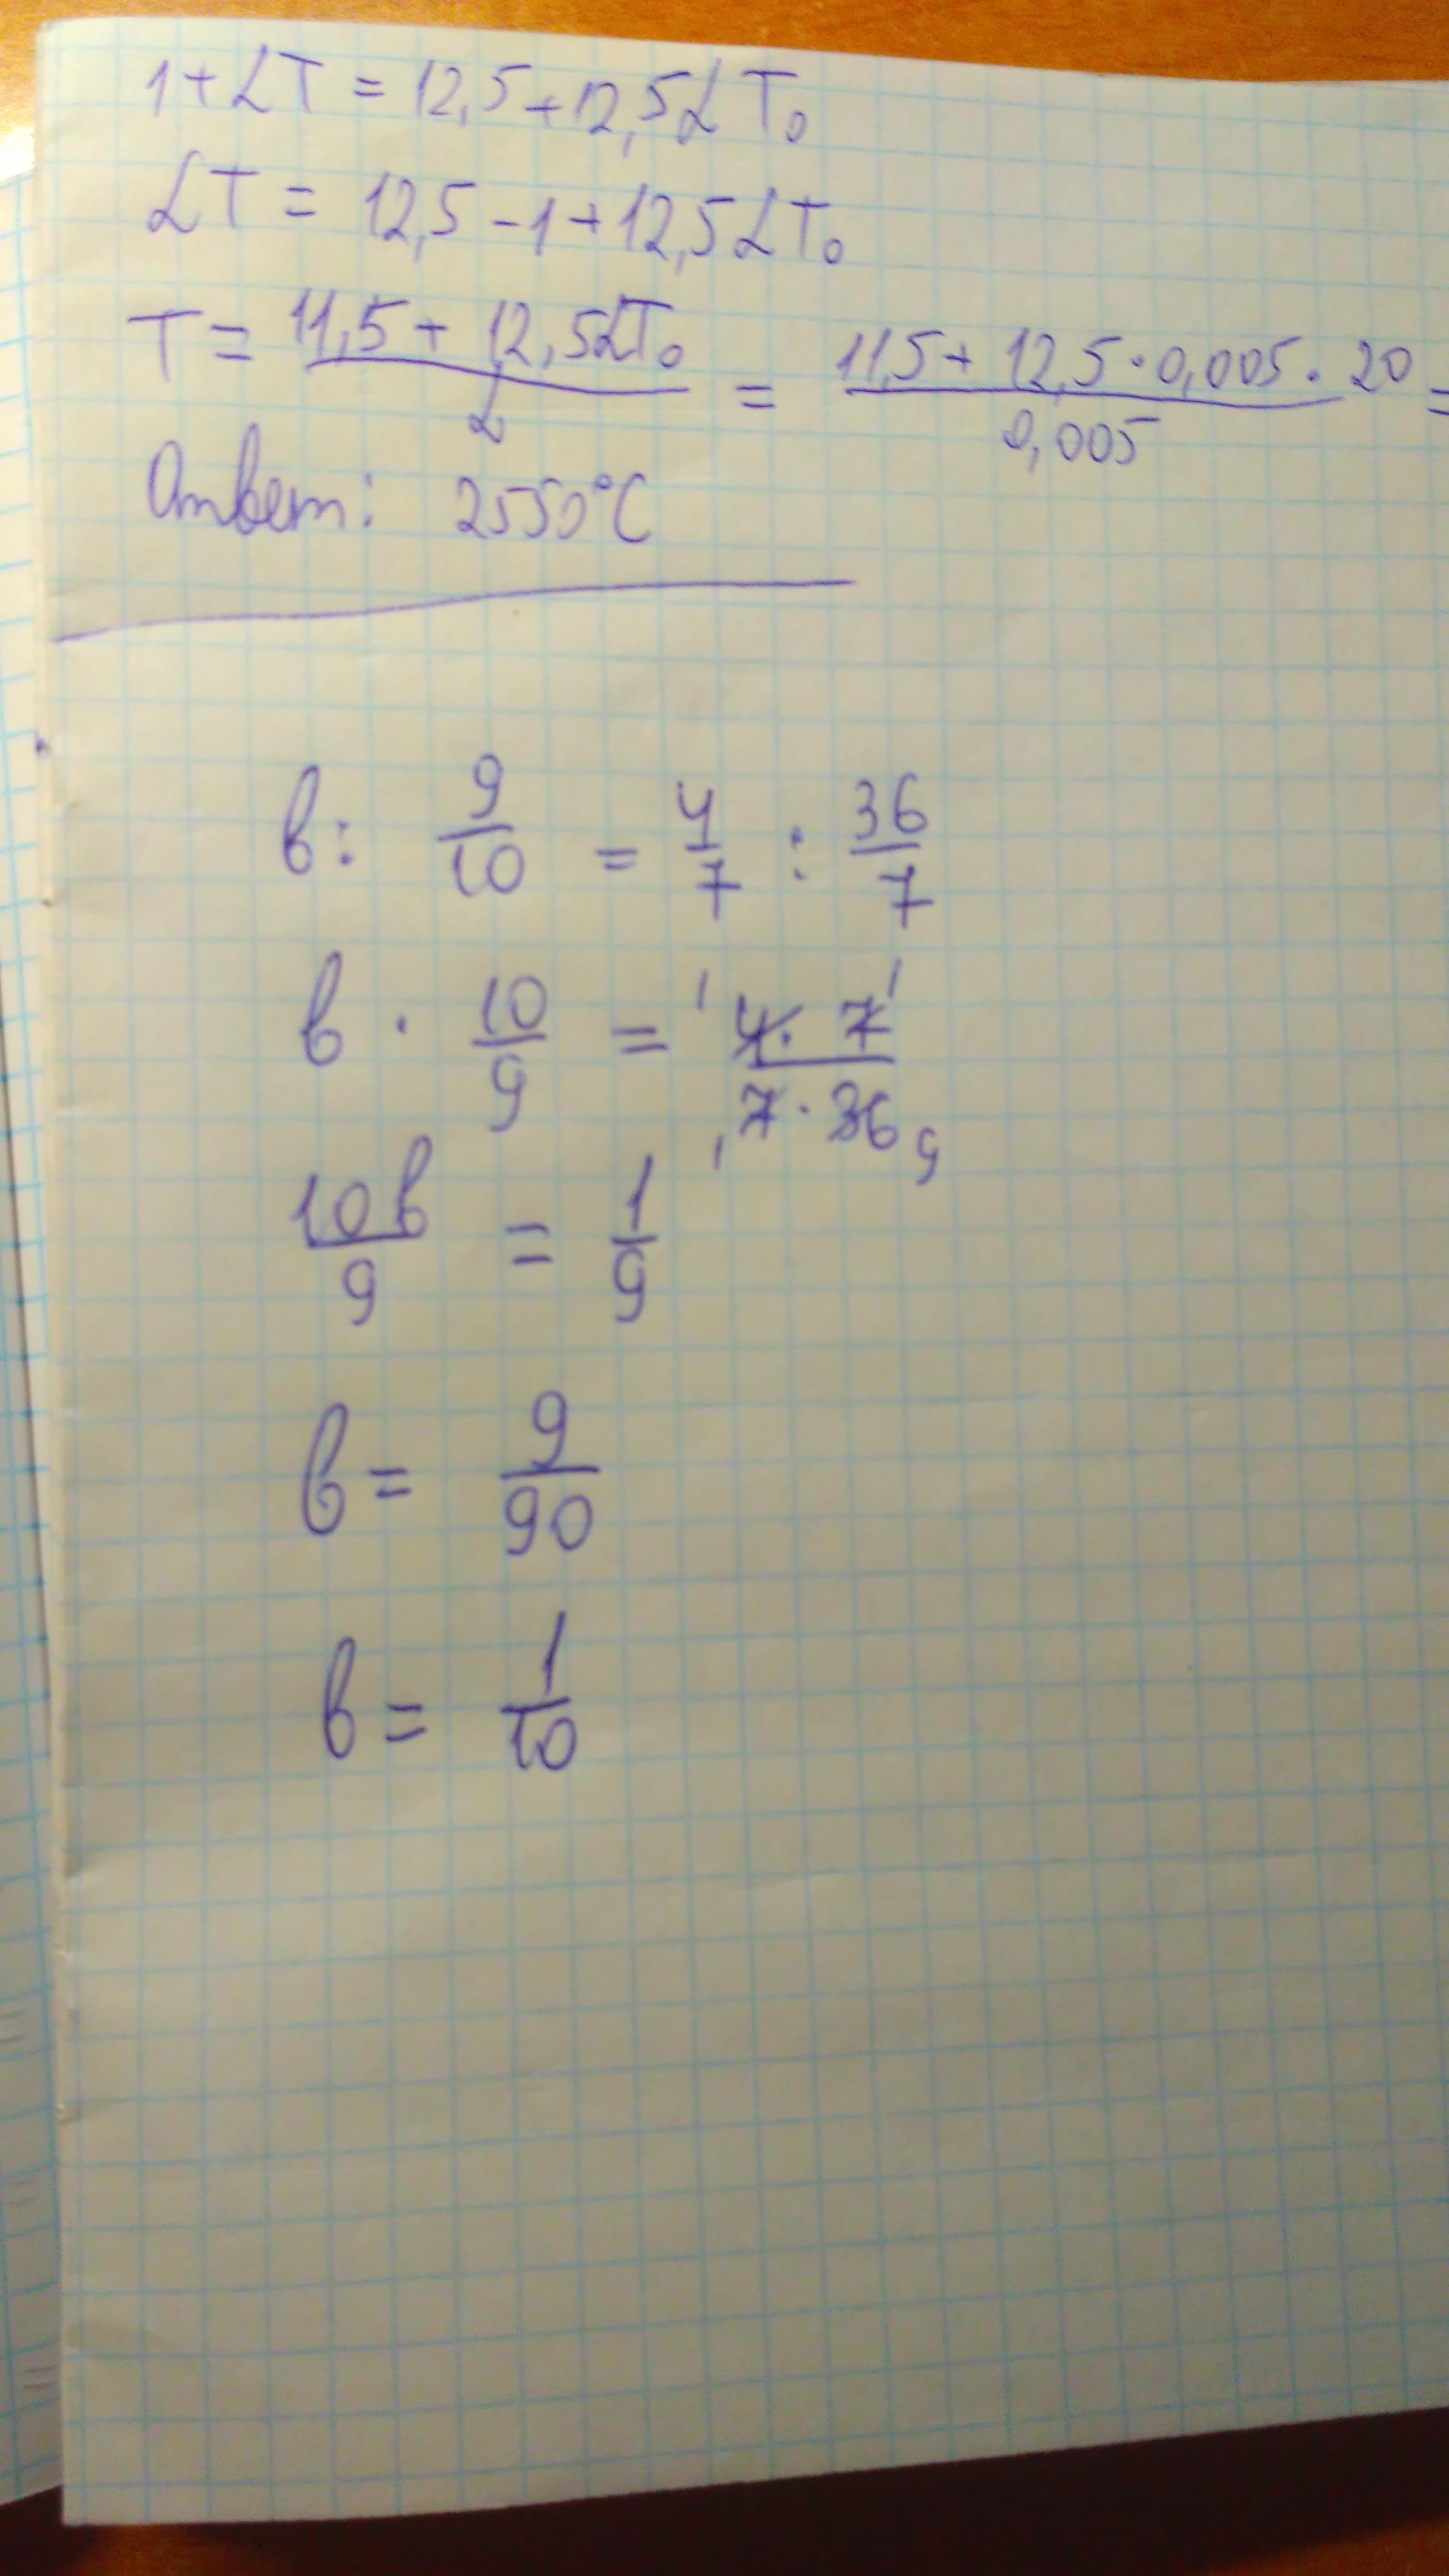 1+αT = 12,5+12,5αT₀
αT = 12,5-1+12,5αT₀
T = (11,5+12,5αT₀)/α = (11,5+12,5·0,005·20)/0,005 =
Ответ: 2550°C
в: 9/10 = 4/7 : 36/7
в · 10/9 = ¹4·7¹/₁7·36₉
10в/9 = 1/9
в = 9/90
в = 1/10